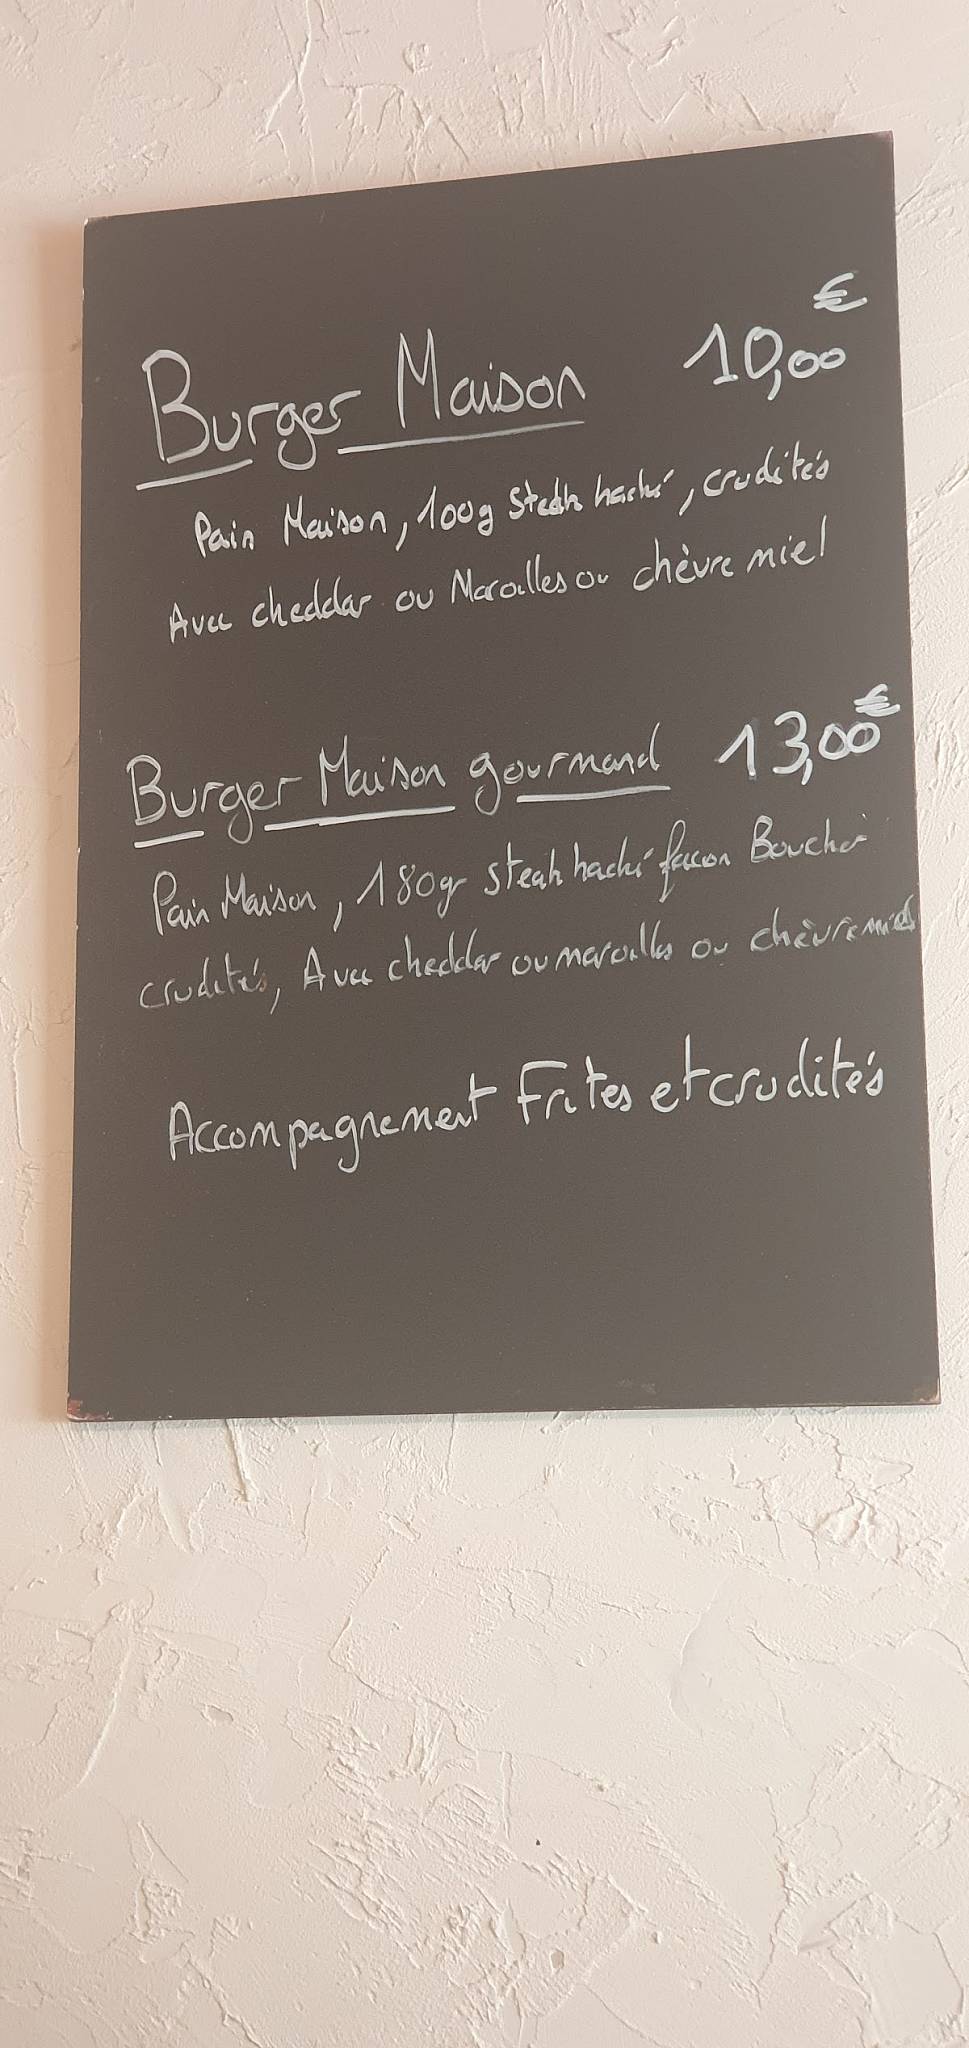 Burger Maison 10,00€
Pain Maison, 100g Steak haché, crudités
Avec cheddar ou Maroilles ou chèvre miel
Burger Maison gourmand 13,00€
Pain Maison, 180gr Steak haché façon Boucher
crudités, Avec cheddar ou maroilles ou chèvre miel
Accompagnement Frites et crudités